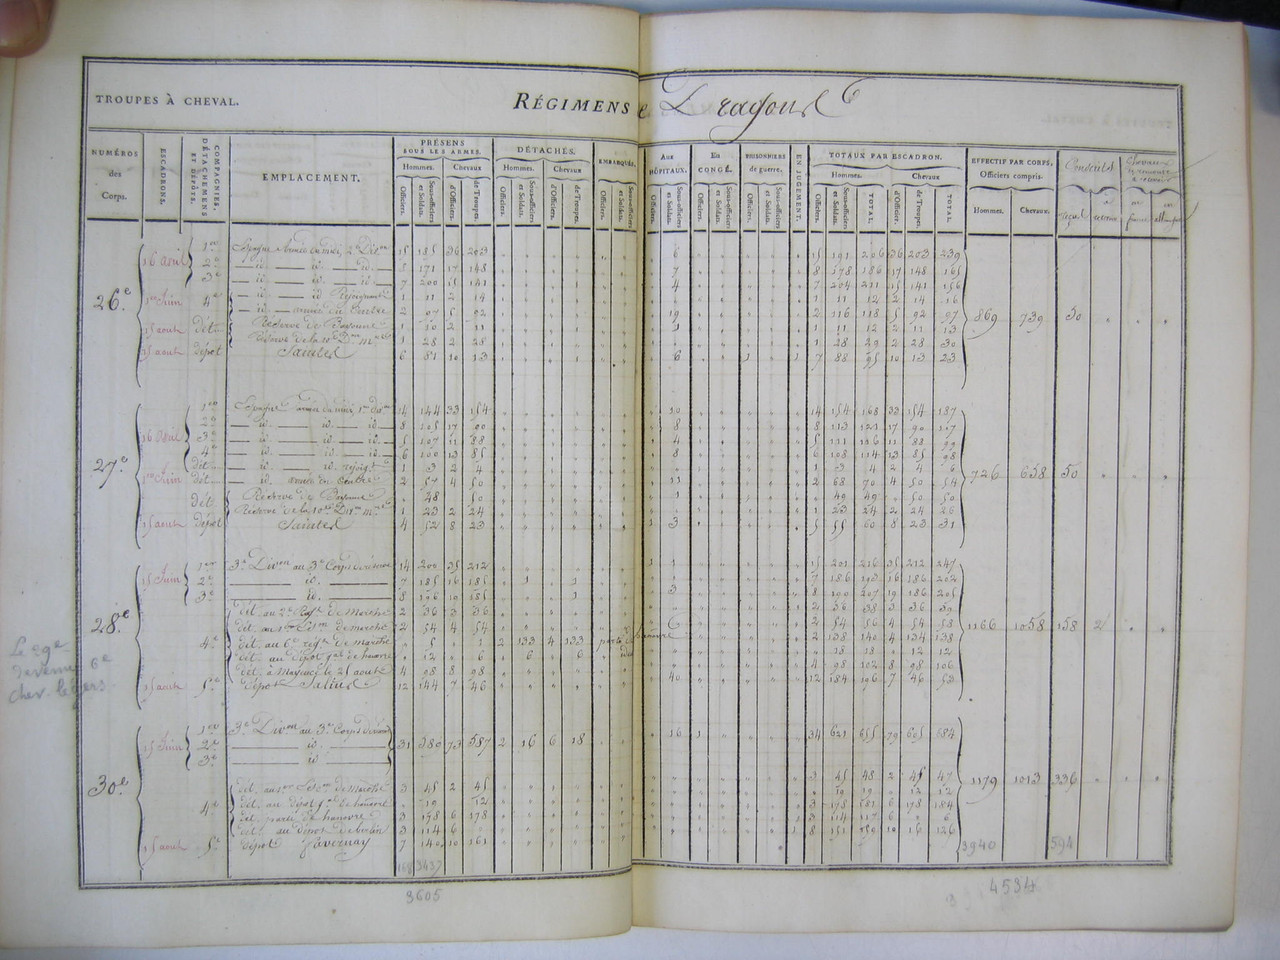 TROUPES À CHEVAL.
RÉGIMENS de Dragons
NUMÉROS des Corps.
ESCADRONS.
COMPAGNIES, DÉTACHEMENS ET DÉPÔTS.
EMPLACEMENT.
PRÉSENS SOUS LES ARMES.
Hommes. Chevaux
Officiers. Sous-officiers et Soldats. d'Officiers. de Troupes.
DÉTACHÉS.
Hommes. Chevaux
Officiers. Sous-officiers et Soldats. d'Officiers. de Troupes.
EMBARQUÉS.
Officiers. Sous-officiers et Soldats.
Aux HÔPITAUX.
Officiers. Sous-officiers et Soldats.
En CONGÉ.
Officiers. Sous-officiers et Soldats.
PRISONNIERS de guerre.
Officiers. Sous-officiers et Soldats.
EN JUGEMENT.
TOTAUX PAR ESCADRON.
Hommes. Chevaux
Officiers. Sous-officiers et Soldats. TOTAL. d'Officiers. de Troupes. TOTAL.
EFFECTIF PAR CORPS, Officiers compris.
Hommes. Chevaux.
Conscrits
26.e
16 avril
1er Espagne Armée du midi, 2e Divon 15 185 36 203 6 15 191 206 36 203 239
2e id. id. id. 8 171 17 148 7 8 178 186 17 148 165
3e id. id. id. 7 200 15 141 4 7 204 211 15 141 156
1er Juin 4e id. id. Rejoignant 1 11 2 14 1 11 12 2 14 16
id. armée du Centre 2 97 5 92 19 2 116 118 5 92 97
15 aout dét. Réserve de Bayonne 1 10 2 11 1 1 11 12 2 11 13
Réserve de la 10e Don mre 1 28 2 28 1 28 29 2 28 30
15 aout dépot Saintes 6 81 10 13 6 1 1 7 88 95 10 13 23
869 739 30
27.e
16 avril
1er Espagne armée du midi, 1re Divon 14 144 33 154 10 14 154 168 33 154 187
2e id. id. id. 8 105 17 90 8 8 113 121 17 90 107
3e id. id. id. 5 107 11 88 4 5 111 116 11 88 99
4e id. id. id. 6 100 13 85 8 6 108 114 13 85 98
dét. id. id. rejoigt 1 3 2 4 1 3 4 2 4 6
1er Juin dét. id. armée du Centre 2 57 4 50 11 2 68 70 4 50 54
dét. Réserve de Bayonne 48 50 1 49 49 50 50
Réserve de la 10e Don mre 1 23 2 24 1 23 24 2 24 26
15 aout dépot Saintes 4 52 8 23 3 5 55 60 8 23 31
726 658 50
28.e
15 Juin
1er 3e Divon au 3e Corps de réserve 14 200 35 212 1 1 15 201 216 35 212 247
2e id. 7 185 16 185 1 1 7 186 193 16 186 202
3e id. 8 196 19 185 3
4e dét. au 2e Régt de Marche 2 36 3 36 2 36 38 3 36 39
dét. au 1er Régt de marche 2 54 4 54 2 54 56 4 54 58
dét. au 6e régt de marche 5 1 2 133 4 133 partie d'hanovre 2 138 140 4 134 138
dét. au dépot gal de hanovre 12 6 6 6 idem 18 18 12 12
dét. à Mayence le 25 aout 4 98 8 98 4 98 102 8 98 106
15 aout 5e dépot Salins 12 144 7 46 40 12 184 196 7 46 53
1166 1058 158 2
Le 29e devenu 6e chev. légers
30.e
15 Juin
1er 3e Divon au 3e Corps de réserve
2e id. 31 580 73 587 2 16 6 18
3e id.
16 1 34 621 655 79 605 684
4e dét. au 1er Régt de Marche 3 45 2 45 3 45 48 2 45 47
dét. au dépot gal de hanovre 19 12 19 19 12 12
dét. partie de hanovre 3 178 6 178 3 178 181 6 178 184
dét. au dépot de berlin 3 114 6 3 114 117 6 6
15 aout 5e dépot Favernay 7 140 10 161
1179 1013 336
3940 594
168 3437
3605
4534